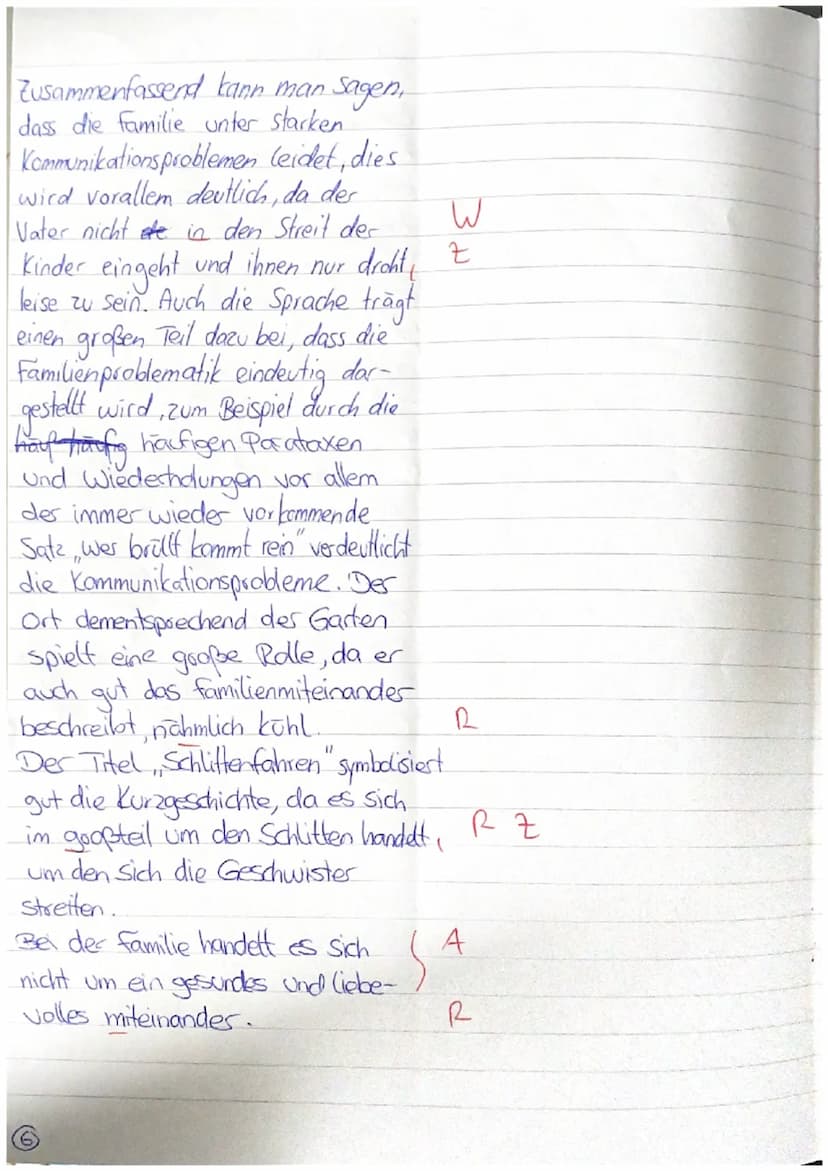 Zusammenfassend kann man sagen,
dass die Familie unter starken
Kommunikationsproblemen leidet, dies
wird vorallem deutlich, da der
W
Vater nicht de in den Streit der
Z
Kinder eingeht und ihnen nur droht,
leise zu sein. Auch die Sprache trägt
einen großen Teil dazu bei, dass die
Familienproblematik eindeutig dar-
gestellt wird, zum Beispiel durch die
häuf häufig häufigen Parataxen
und Wiederholungen vor allem
der immer wieder vorkommende
Satz „wer brüllt kommt rein" verdeutlicht
die Kommunikationsprobleme. Der
Ort dementsprechend der Garten
spielt eine große Rolle, da er
auch gut das Familienmiteinander
beschreibt, nähmlich kühl. R
Der Titel „Schlittenfahren" symbolisiert
gut die Kurzgeschichte, da es sich
im großteil um den Schlitten handelt, R Z
um den sich die Geschwister
streiten.
Bei der Familie handelt es sich A
nicht um ein gesundes und liebe-
volles miteinander. R
6